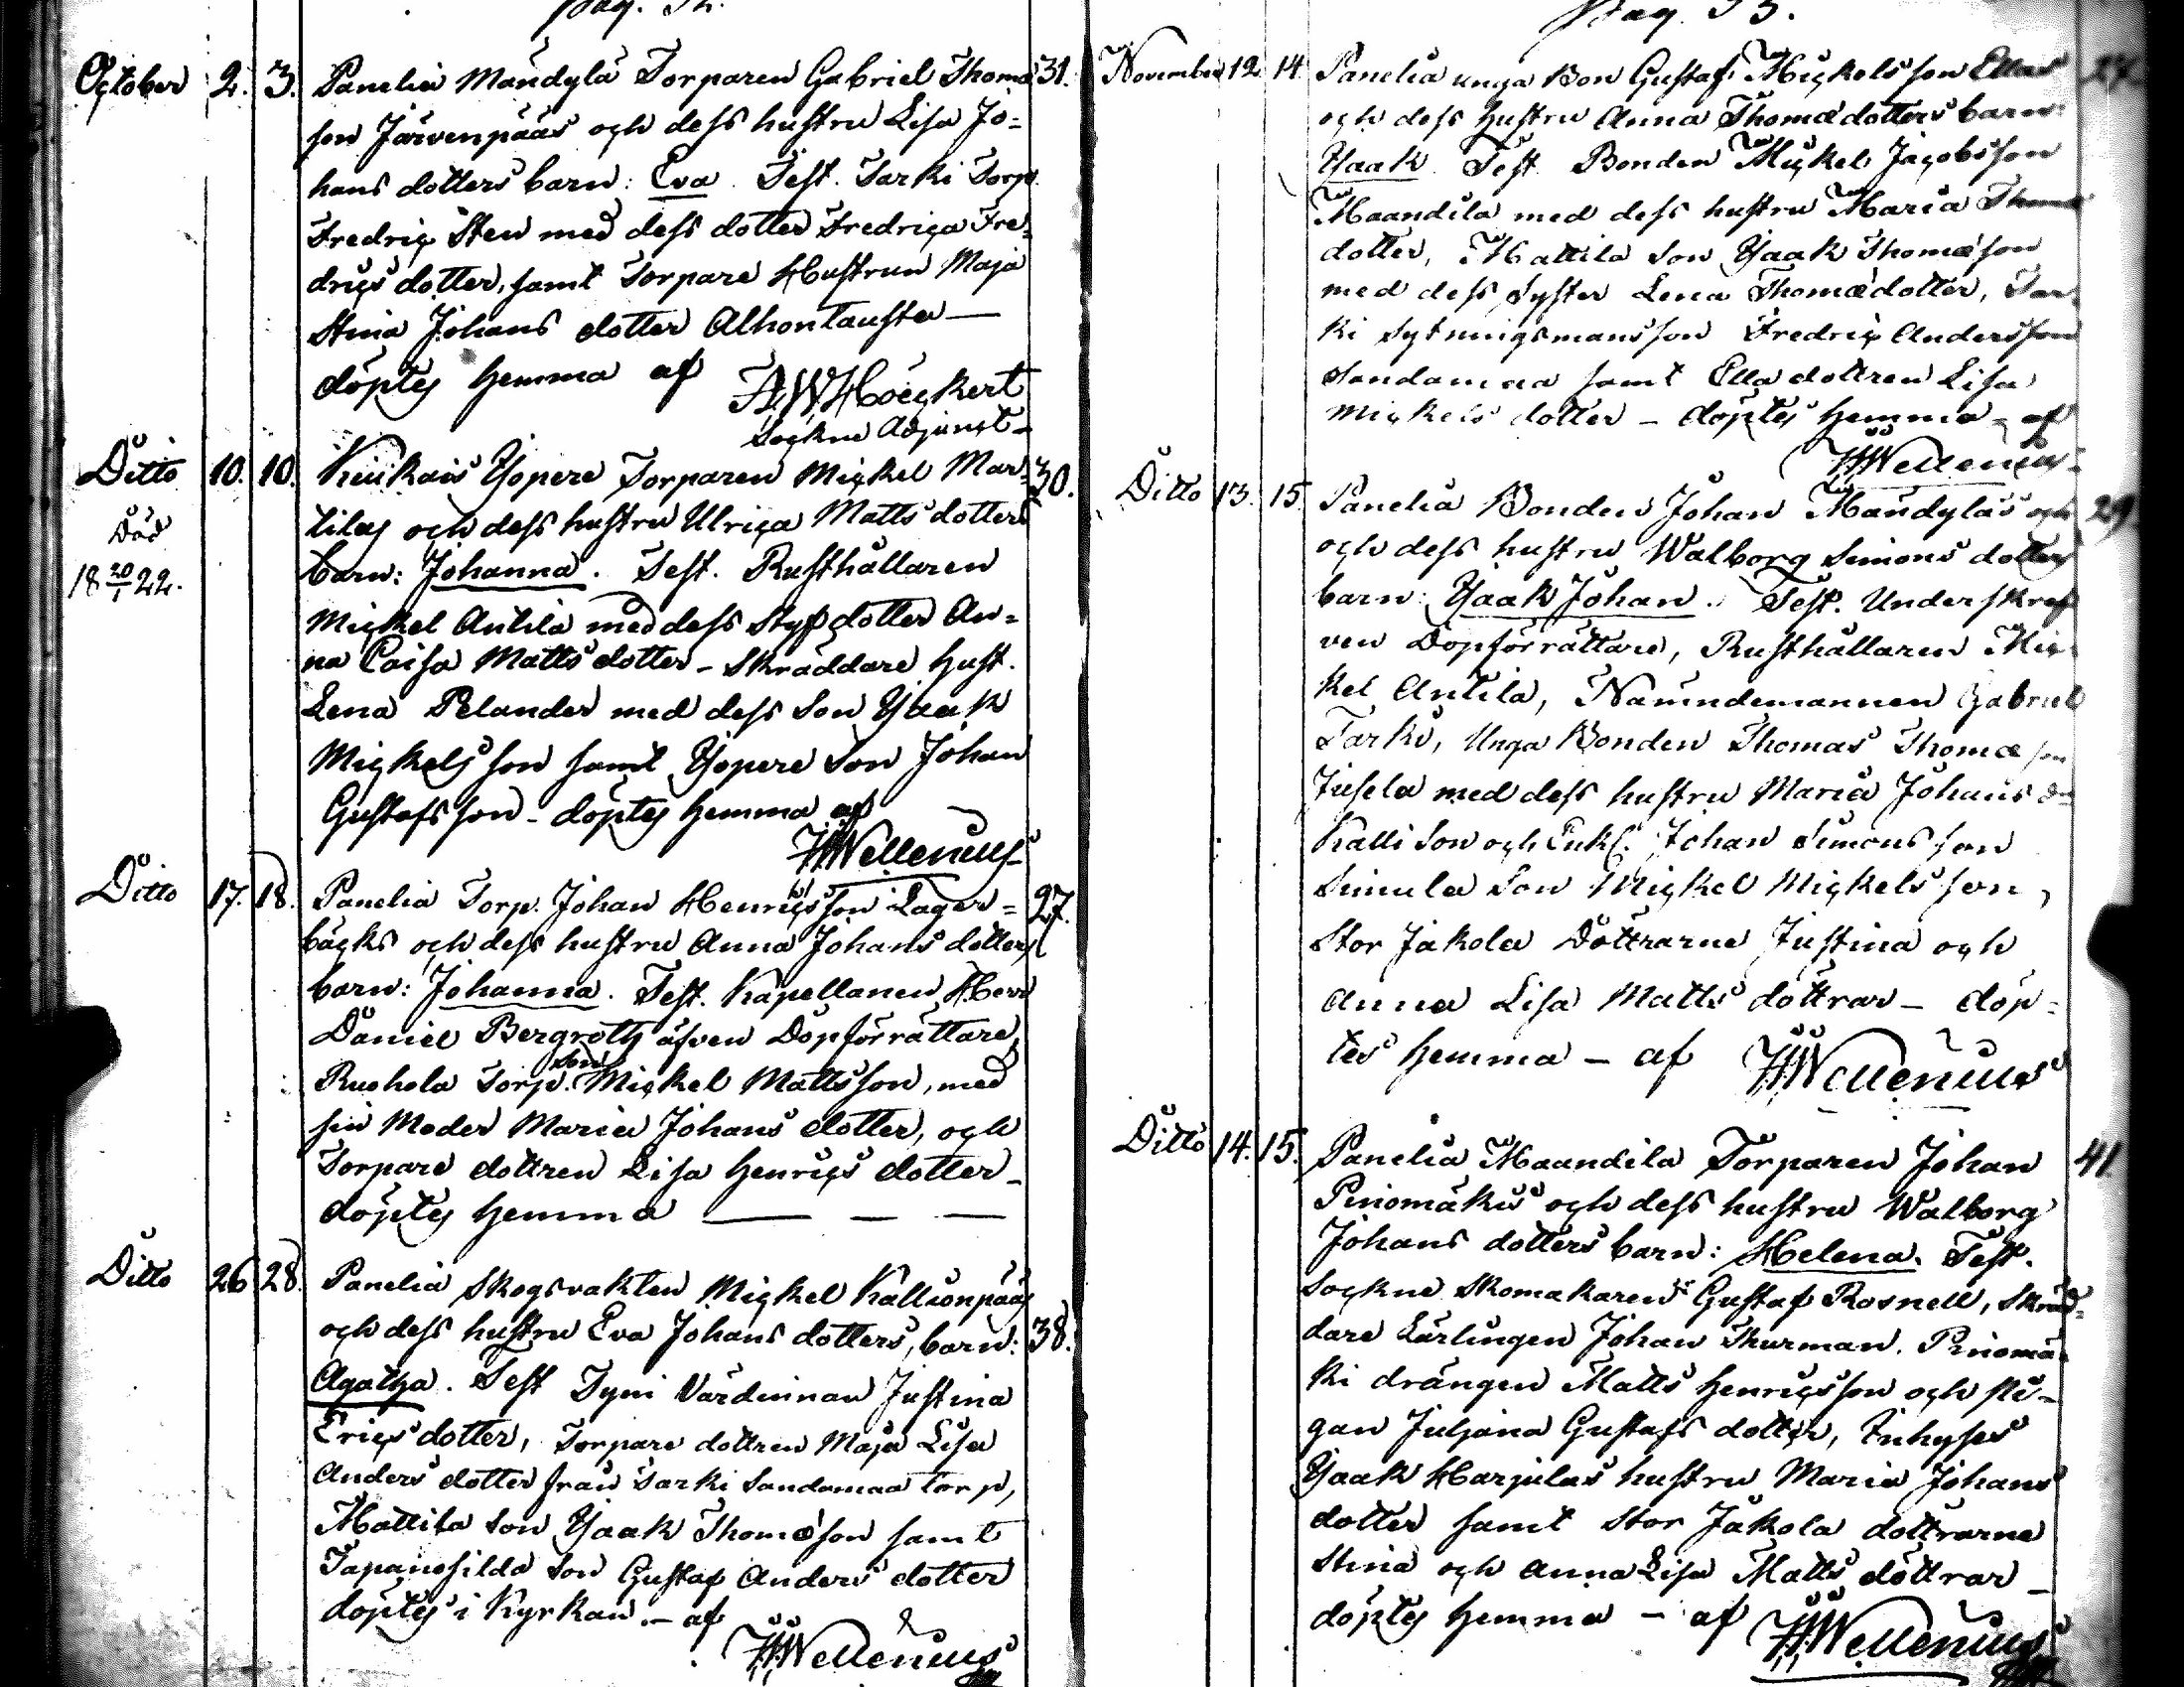 Pag.
October 2. 3. Panelia Mandylä Torparen Gabriel Thomæ 31.
son Järvenpääs och dess hustru Lisa Jo=
hans dotters barn: Eva. Test. Tarki Torp.
Fredric Sten med dess dotter Fredrica Fre=
drics dotter, samt Torpare Hustrun Maja
Stina Johans dotter Alhontausta —
döptes hemma af A W Höckert
Sockne Adjunct
Ditto 10. 10. Kiukais Yopere Torparen Mickel Mar= 30.
tilas och dess hustru Ulrica Matts dotters
Död
18 20/1 22.
barn: Johanna. Test. Rusthållaren
Mickel Antila med dess Styfdotter An=
na Caisa Matts dotter – Skräddare hust.
Lena Pelander med dess Son Ysaak
Mickels son samt Yopere Son Johan
Gustafs son – döptes hemma af
Wellenius
Ditto 17. 18. Panelia Torp. Johan Henrics son Lager= 27.
bäcks och dess hustru Anna Johans dotters
barn: Johanna. Test. Kapellanen Herr
Daniel Bergroth äfven Dopförrättare,
Ruohola Torp. son Mickel Matts son, med
sin Moder Maria Johans dotter, och
Torpare dottren Lisa Henrics dotter –
döptes hemma — — —
Ditto 26 28. Panelia Skogsvakten Mickel Kallionpääs
och dess hustru Eva Johans dotters, barn: 38.
Agatha. Test Tyni Värdinnan Justina
Erics dotter, Torpare dottren Maja Lisa
Anders dotter från Tarki Sandamaa torp,
Mattila Son Ysaak Thomæ son samt
Son Gustaf Anders dotter
döptes i Kyrkan. – af
Wellenius
Pag. 53.
November 12 14. Panelia unga Bon Gustaf Mickels son Ellas 27.
och dess hustru Anna Thomæ dotters barn
Ysaak. Test. Bonden Mickel Jacobs son
Maandila med dess hustru Maria Thomæ
dotter, Mattila Son Ysaak Thomæ son
med dess Syster Lena Thomæ dotter, Tar=
ki Sytningsmans son Fredric Anders son
Sandamaa samt Ella dottren Lisa
Mickels dotter – döptes hemma – af
Wellenius
Ditto 13. 15. Panelia Bonden Johan Mandyläs och 29
och dess hustru Walborg Simons dotters
barn: Ysaak Johan. Test. Underskref
ven Dopförrättare, Rusthållaren Mic
kel Antila, Nämndemannen Gabriel
Tarki, Unga Bonden Thomas Thomæ son
Jusela med dess hustru Maria Johans
Kalli Son och Enkl. Johan Simons son
Simula Son Mickel Mickels son,
Stor Jakola Döttrarne Justina och
Anna Lisa Matts döttrar – döp=
tes hemma – af Wellenius
Ditto 14. 15. Panelia Maandila Torparen Johan 41.
Pinomäkis och dess hustru Walborg
Johans dotters barn: Helena. Test.
Sockne Skomakaren Gustaf Rosnell, Skräd=
dare Lärlingen Johan Thurman. Pinomä=
ki drängen Matts Henrics son och pi=
gan Juliana Gustafs dotter, Inhyses
Ysaak Harjulas hustru Maria Johans
dotter samt Stor Jakola döttrarne
Stina och Anna Lisa Matts döttrar –
döptes hemma – af Wellenius